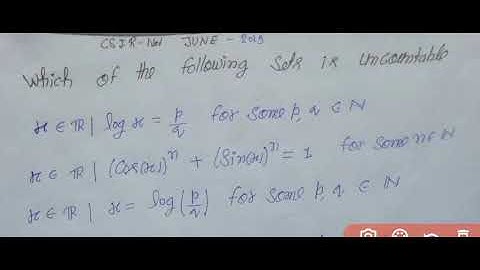 CSIR-Net JUNE - 2019
Which of the following sets is uncountable
x ∈ ℝ | log x = p/q for some p, q ∈ ℕ
x ∈ ℝ | (Cos(x))^n + (Sin(x))^n = 1 for some n ∈ ℕ
x ∈ ℝ | x = log(p/q) for some p, q ∈ ℕ